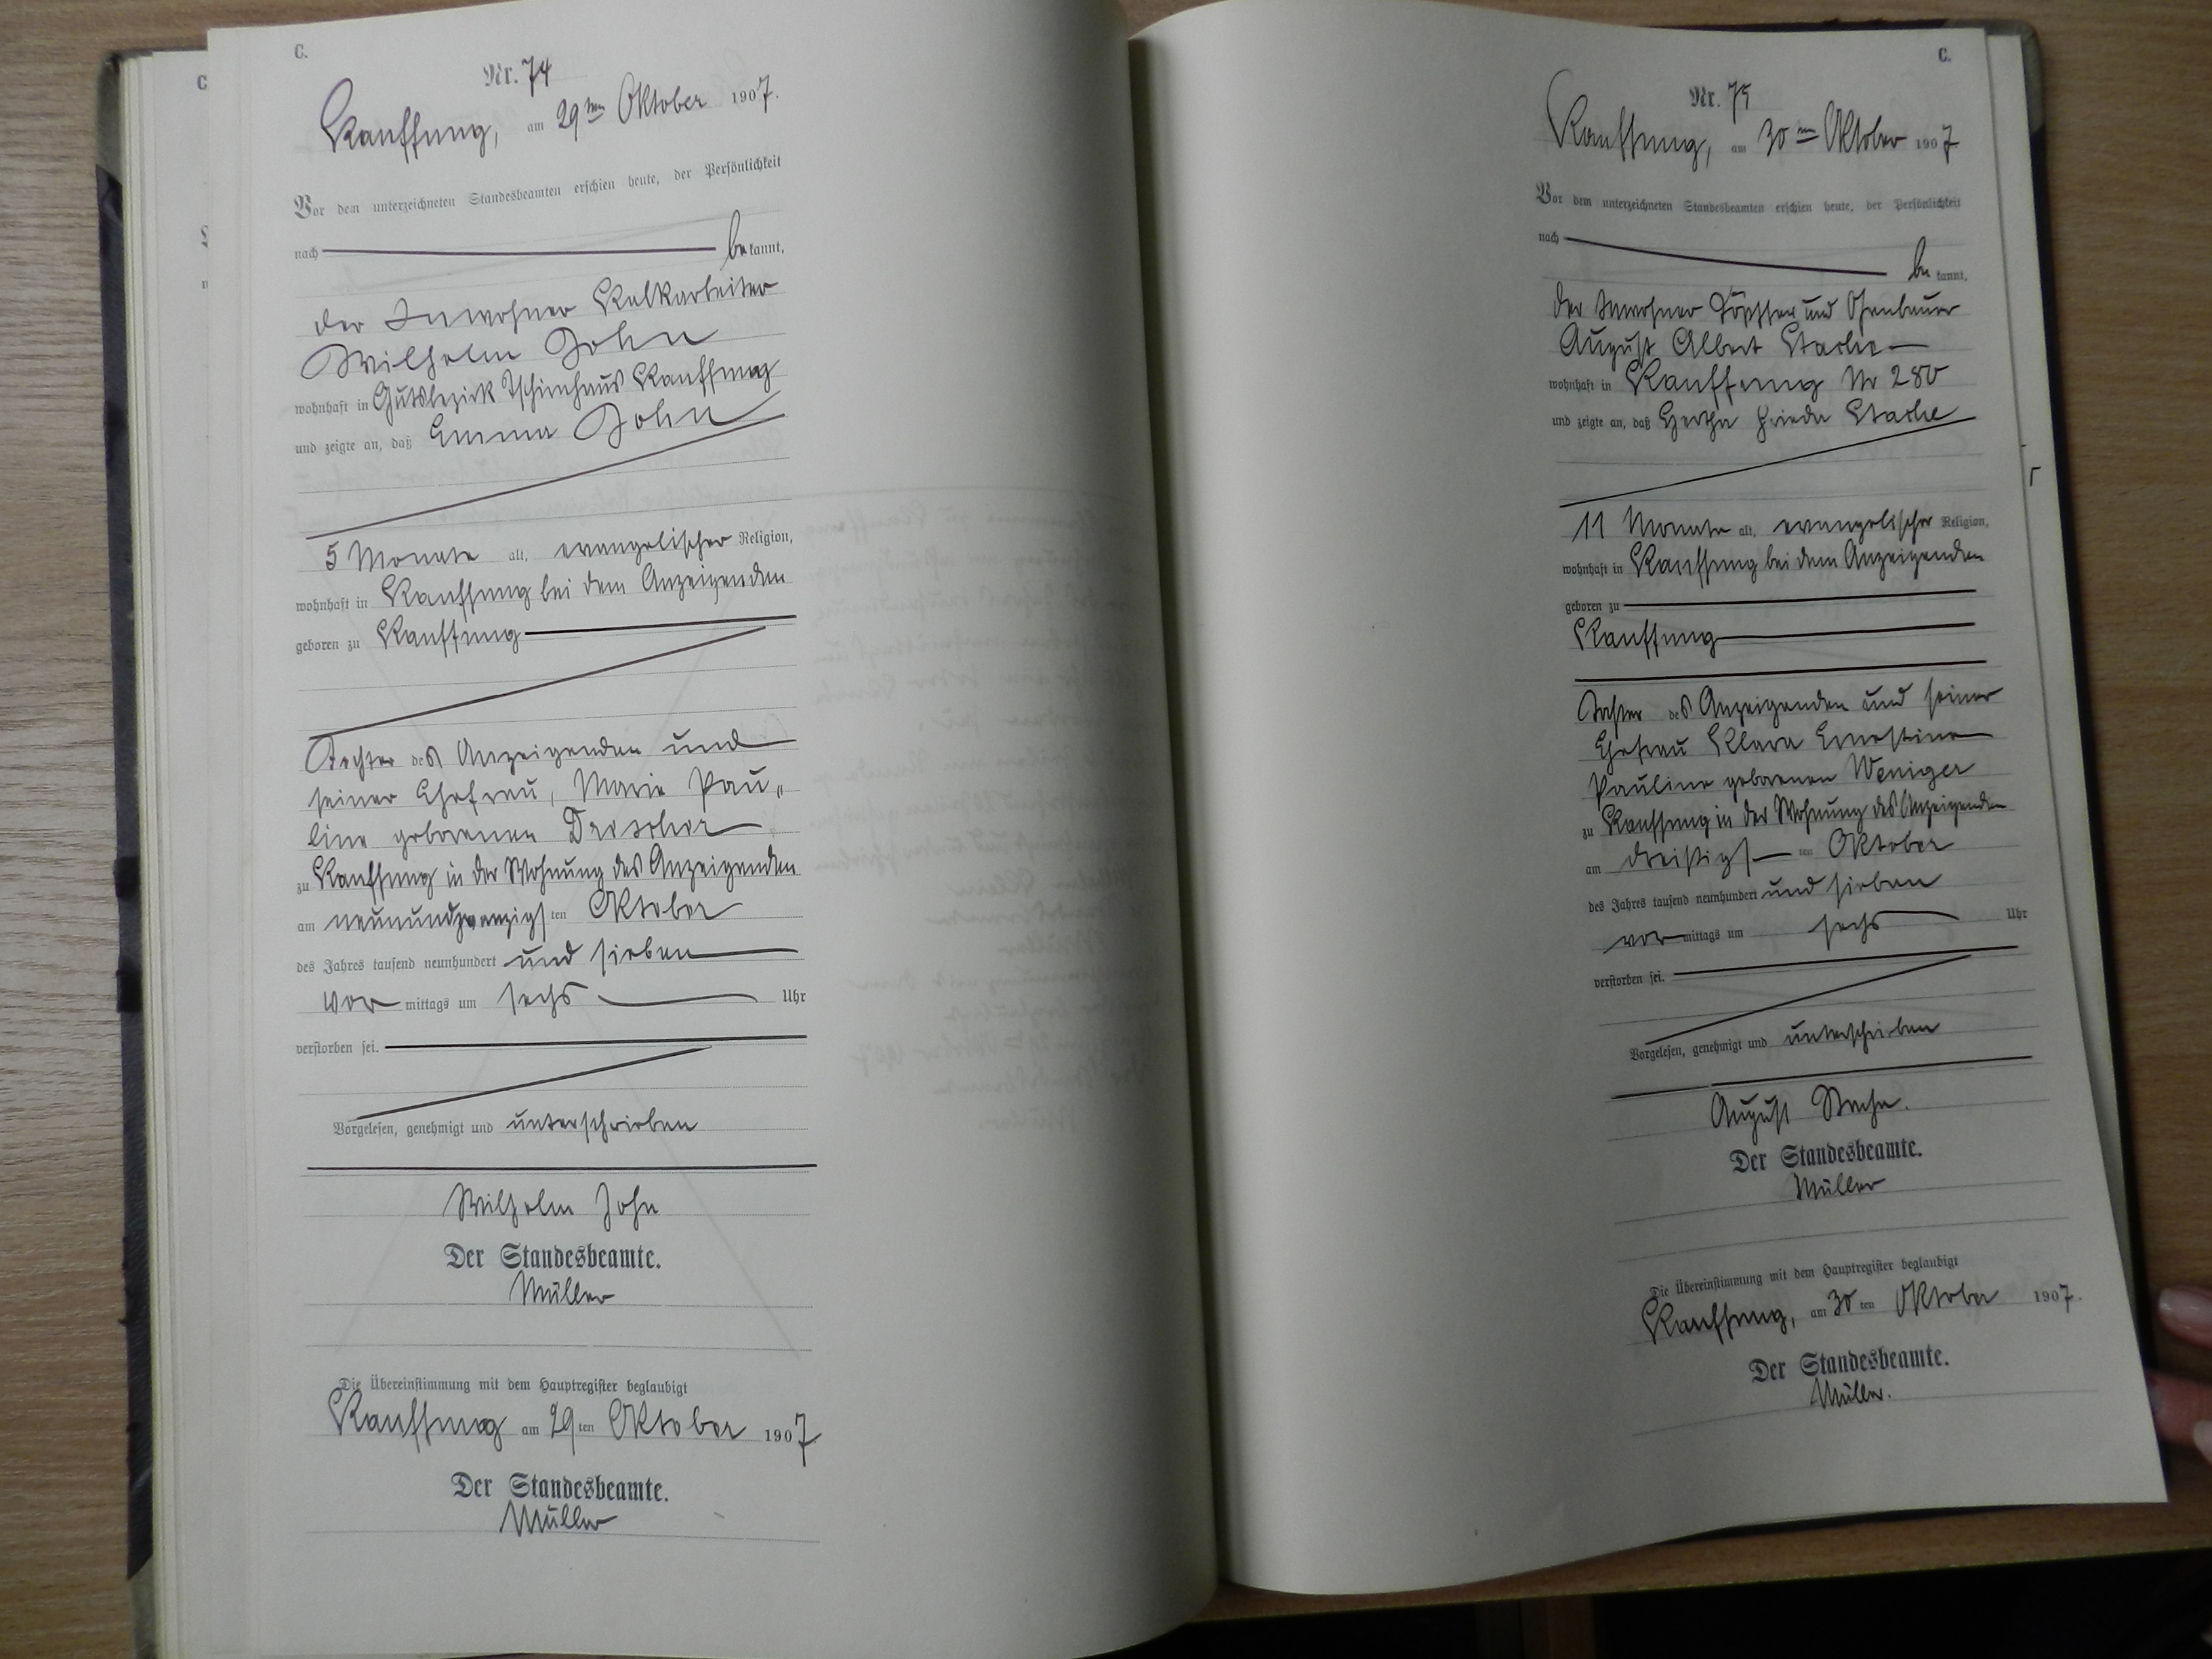 C.
Nr. 74
Kauffung, am 29ten Oktober 1907.
Vor dem unterzeichneten Standesbeamten erschien heute, der Persönlichkeit
nach bekannt,
der Inwohner Kalkarbeiter
Wilhelm John
wohnhaft in Gutsbezirk Tschirnhaus Kauffung
und zeigte an, daß Emma John
5 Monate alt, evangelischer Religion,
wohnhaft in Kauffung bei dem Anzeigenden
geboren zu Kauffung
Tochter des Anzeigenden und
seiner Ehefrau, Marie Pau„
line geborenen Drescher
zu Kauffung in der Wohnung des Anzeigenden
am neunundzwanzigsten Oktober
des Jahres tausend neunhundert und sieben
vormittags um sechs Uhr
verstorben sei.
Vorgelesen, genehmigt und unterschrieben
Wilhelm John
Der Standesbeamte.
Müller
Die Übereinstimmung mit dem Hauptregister beglaubigt
Kauffung am 29ten Oktober 1907.
Der Standesbeamte.
Müller
C.
Nr. 75
Kauffung, am 30ten Oktober 1907
Vor dem unterzeichneten Standesbeamten erschien heute, der Persönlichkeit
nach bekannt,
der Inwohner Töpffer und Ofenbauer
August Albert Stache
wohnhaft in Kauffung Nr 280
und zeigte an, daß Hertha Frieda Stache
11 Monate alt, evangelischer Religion,
wohnhaft in Kauffung bei dem Anzeigenden
geboren zu
Kauffung
Tochter des Anzeigenden und seiner
Ehefrau Klara Ernestine
Pauline geborenen Weniger
zu Kauffung in der Wohnung des Anzeigenden
am dreißigsten Oktober
des Jahres tausend neunhundert und sieben
vormittags um sechs Uhr
verstorben sei.
Vorgelesen, genehmigt und unterschrieben
August Stache.
Der Standesbeamte.
Müller
Die Übereinstimmung mit dem Hauptregister beglaubigt
Kauffung, am 30ten Oktober 1907.
Der Standesbeamte.
Müller.